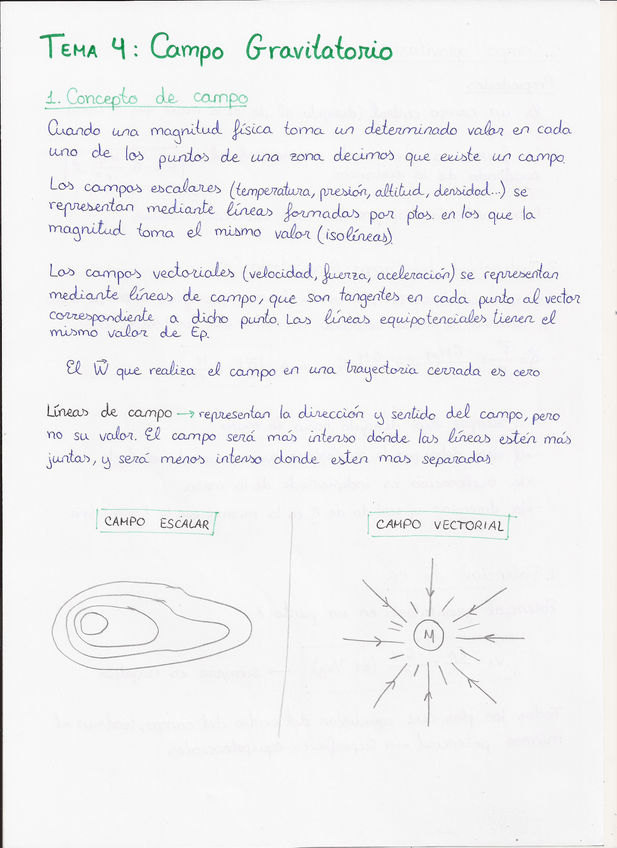 TEMA 4: Campo Gravitatorio
1. Concepto de campo
Cuando una magnitud física toma un determinado valor en cada
uno de los puntos de una zona decimos que existe un campo.
Los campos escalares (temperatura, presión, altitud, densidad...) se
representan mediante líneas formadas por ptos. en los que la
magnitud toma el mismo valor (isolíneas)
Los campos vectoriales (velocidad, fuerza, aceleración) se representan
mediante líneas de campo, que son tangentes en cada punto al vector
correspondiente a dicho punto. Las líneas equipotenciales tienen el
mismo valor de Ep.
El W⃗ que realiza el campo en una trayectoria cerrada es cero
Líneas de campo → representan la dirección y sentido del campo, pero
no su valor. El campo será más intenso dónde las líneas estén más
juntas, y será menos intenso donde esten mas separadas
CAMPO ESCALAR
CAMPO VECTORIAL
M